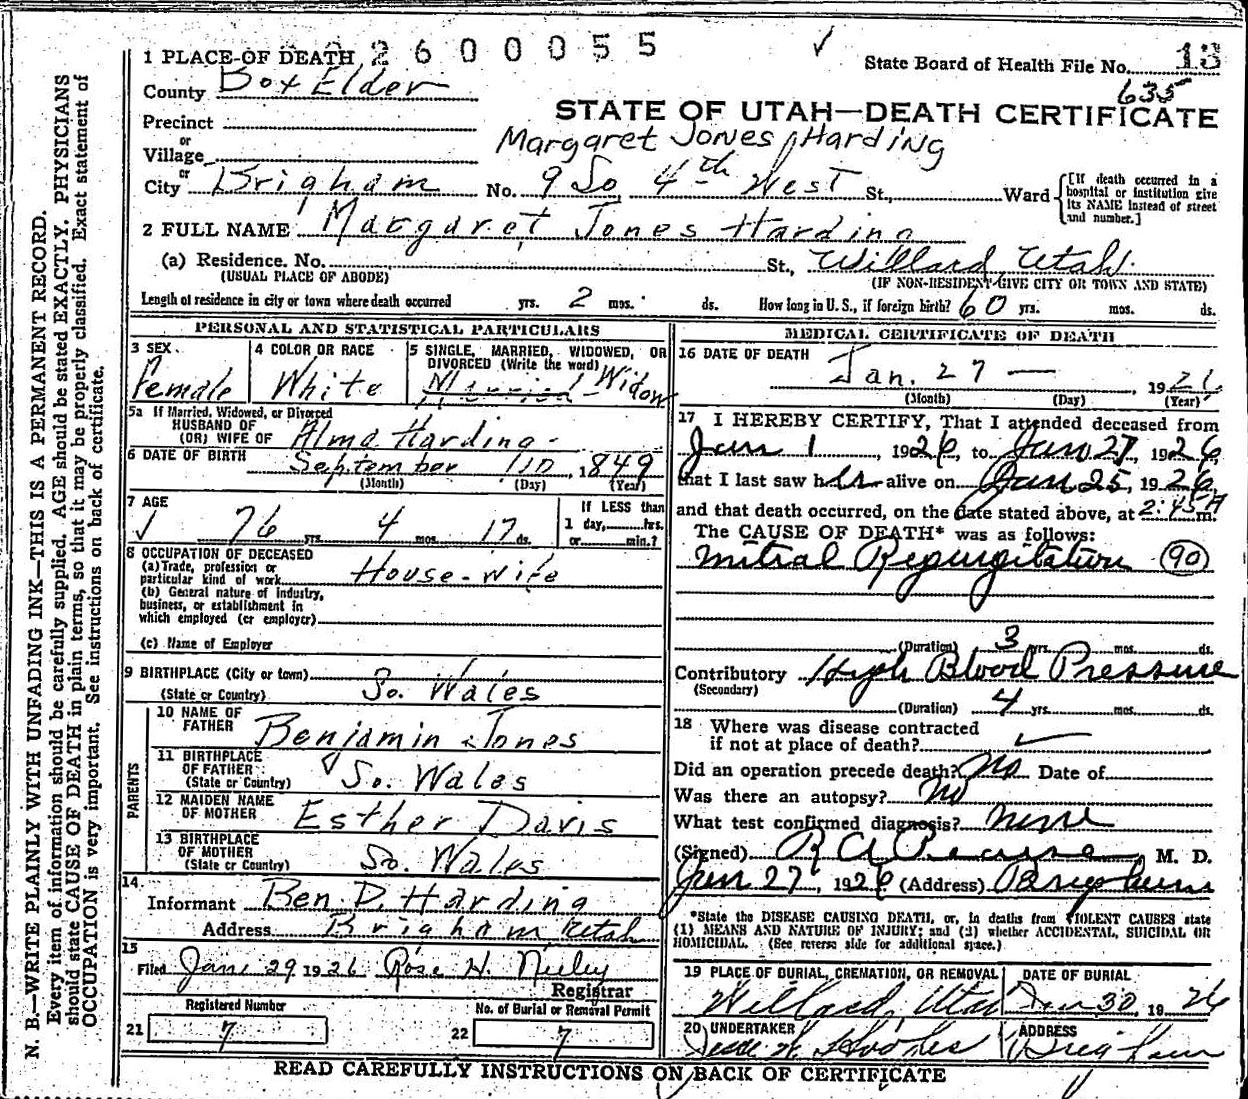 2600055
1 PLACE OF DEATH
State Board of Health File No. 13
County Box Elder
635
STATE OF UTAH—DEATH CERTIFICATE
Precinct
Margaret Jones Harding
or
Village
or
City Brigham No. 9 So 4th West St., Ward
[If death occurred in a hospital or institution give its NAME instead of street and number.]
2 FULL NAME Margaret Jones Harding
(a) Residence. No. St., Willard, Utah
(USUAL PLACE OF ABODE) (IF NON-RESIDENT GIVE CITY OR TOWN AND STATE)
Length of residence in city or town where death occurred yrs. 2 mos. ds. How long in U.S., if foreign birth? 60 yrs. mos. ds.
PERSONAL AND STATISTICAL PARTICULARS
3 SEX
Female
4 COLOR OR RACE
White
5 SINGLE, MARRIED, WIDOWED, OR
DIVORCED (Write the word)
Married Widow
5a If Married, Widowed, or Divorced
HUSBAND OF
(OR) WIFE OF Alma Harding
6 DATE OF BIRTH September 10, 1849
(Month) (Day) (Year)
7 AGE
76 yrs. 4 mos. 17 ds.
If LESS than
1 day, hrs.
or min.?
8 OCCUPATION OF DECEASED
(a) Trade, profession or
particular kind of work House-wife
(b) General nature of industry,
business, or establishment in
which employed (or employer)
(c) Name of Employer
9 BIRTHPLACE (City or town)
(State or Country) So. Wales
PARENTS
10 NAME OF
FATHER Benjamin Jones
11 BIRTHPLACE
OF FATHER
(State or Country) So. Wales
12 MAIDEN NAME
OF MOTHER Esther Davis
13 BIRTHPLACE
OF MOTHER
(State or Country) So. Wales
14.
Informant Ben D. Harding
Address Brigham, Utah
15
Filed Jan 29 1926 Rose H. Neeley
Registrar
Registered Number
21 7
No. of Burial or Removal Permit
22 7
MEDICAL CERTIFICATE OF DEATH
16 DATE OF DEATH
Jan. 27 — , 1926
(Month) (Day) (Year)
17 I HEREBY CERTIFY, That I attended deceased from
Jan 1, 1926, to Jan 27, 1926,
that I last saw her alive on Jan 25, 1926,
and that death occurred, on the date stated above, at 2:45 A m.
The CAUSE OF DEATH* was as follows:
Mitral Regurgitation (90)
(Duration) 3 yrs. mos. ds.
Contributory High Blood Pressure
(Secondary)
(Duration) 4 yrs. mos. ds.
18 Where was disease contracted
if not at place of death?
Did an operation precede death? No Date of
Was there an autopsy? No
What test confirmed diagnosis? none
(Signed) R A Pearse M. D.
Jan 27, 1926 (Address) Brigham
*State the DISEASE CAUSING DEATH, or, in deaths from VIOLENT CAUSES state
(1) MEANS AND NATURE OF INJURY; and (2) whether ACCIDENTAL, SUICIDAL OR
HOMICIDAL. (See reverse side for additional space.)
19 PLACE OF BURIAL, CREMATION, OR REMOVAL
Willard, Utah
DATE OF BURIAL
Jan 30, 1926
20 UNDERTAKER
ADDRESS
Brigham
READ CAREFULLY INSTRUCTIONS ON BACK OF CERTIFICATE
N. B.—WRITE PLAINLY WITH UNFADING INK—THIS IS A PERMANENT RECORD.
Every item of information should be carefully supplied. AGE should be stated EXACTLY. PHYSICIANS
should state CAUSE OF DEATH in plain terms, so that it may be properly classified. Exact statement of
OCCUPATION is very important. See instructions on back of certificate.